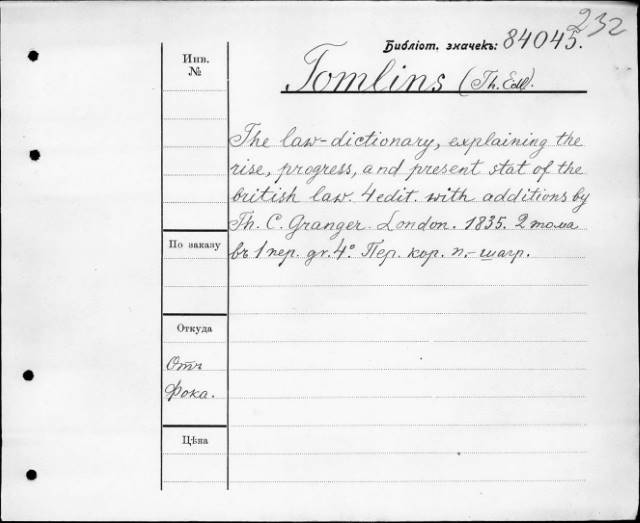 232
Библіот. значекъ: 84045.
Инв.
№
Tomlins (Th. Edl).
The law-dictionary, explaining the
rise, progress, and present stat of the
british law. 4 edit. with additions by
Th. C. Granger. London. 1835. 2 тома
въ 1 пер. gr. 4° Пер. кор. п.-шагр.
По заказу
Откуда
Отъ
Фока.
Цѣна